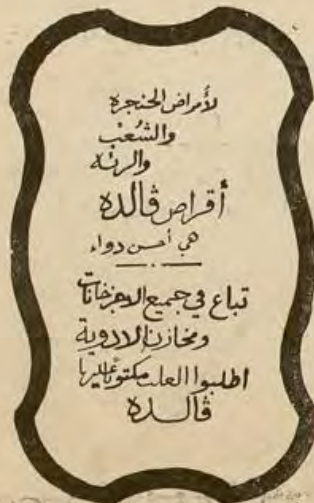 لأمراض الحنجرة
والشُعب
والرئه
أقراص ڤالده
هي أحسن دواء
تباع في جميع الاجزخانات
ومخازن الادوية
اطلبوا العلب مكتوبًا عليها
ڤالده